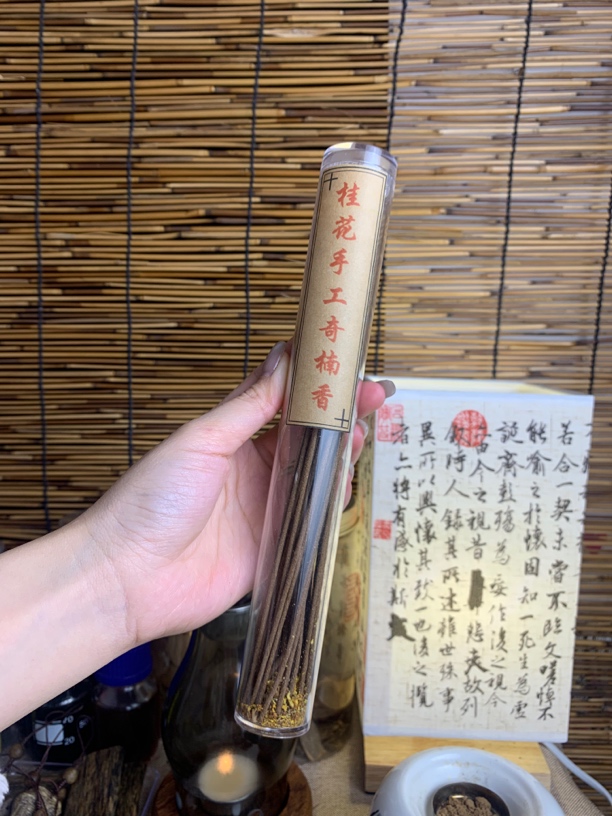 桂花手工奇楠香
若合一契未嘗不臨文嗟悼不
能喻之於懷固知一死生為虛
誕齊彭殤為妄作後之視今
由今之視昔悲夫故列
敘時人錄其所述雖世殊事
異所以興懷其致一也後之攬
者亦將有感於斯文